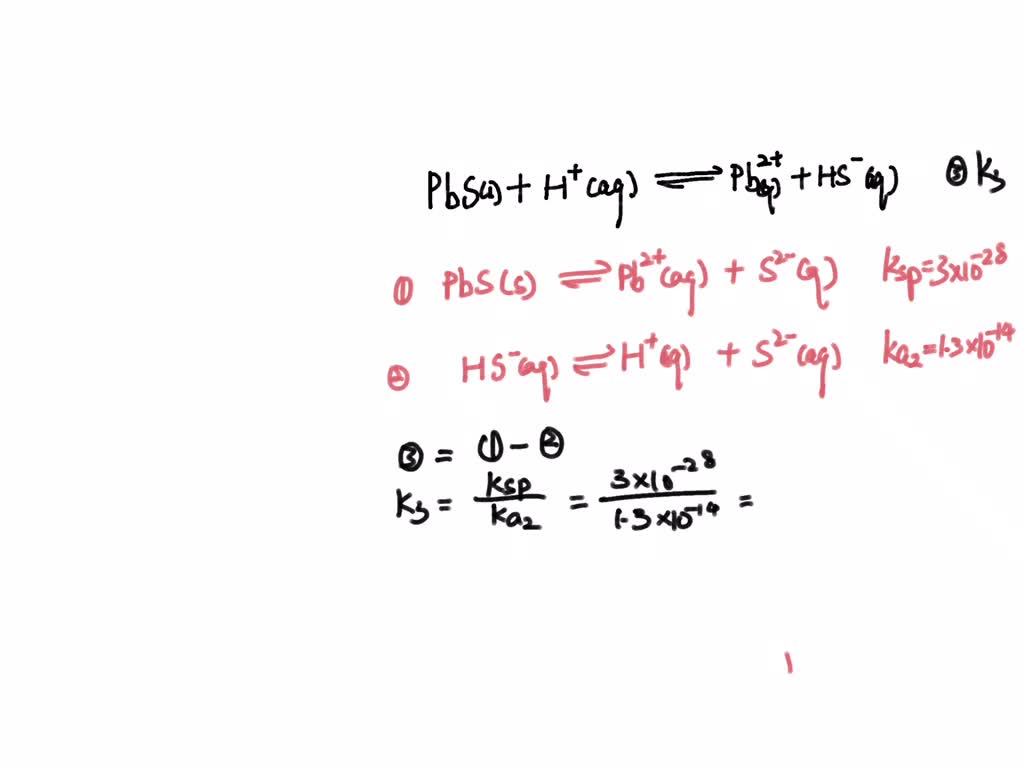 PbS(s) + H⁺(aq) ⇌ Pb²⁺(aq) + HS⁻(aq) ③ K₃
① PbS(s) ⇌ Pb²⁺(aq) + S²⁻(aq) Ksp=3×10⁻²⁸
② HS⁻(aq) ⇌ H⁺(aq) + S²⁻(aq) Ka₂=1.3×10⁻¹⁴
③ = ① - ②
K₃ = Ksp/Ka₂ = 3×10⁻²⁸/1.3×10⁻¹⁴ =